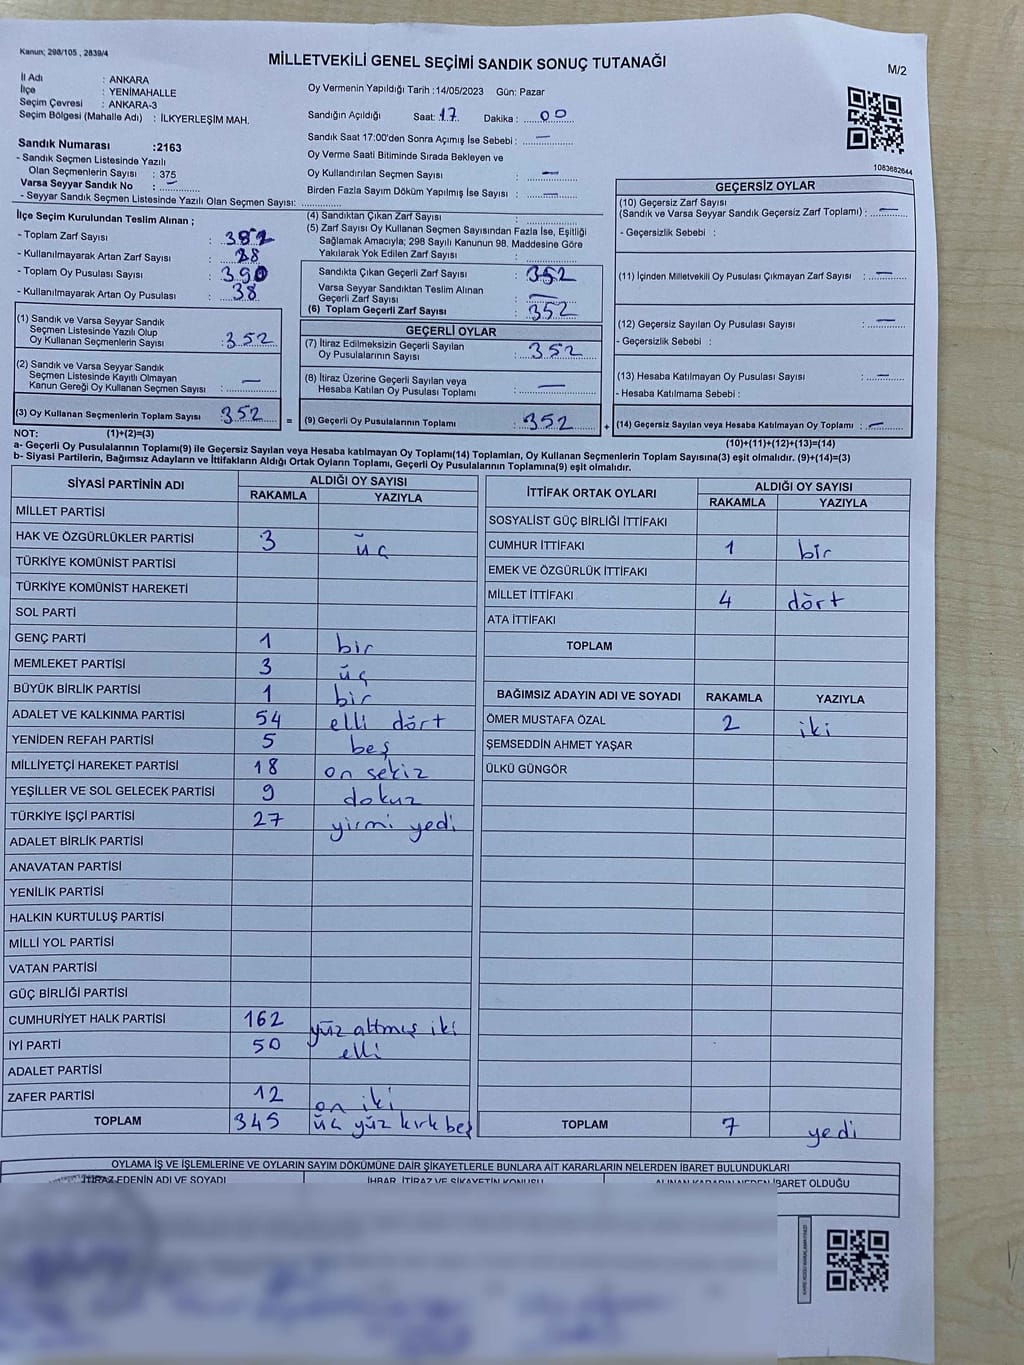 Kanun; 298/105 , 2839/4
MİLLETVEKİLİ GENEL SEÇİMİ SANDIK SONUÇ TUTANAĞI
M/2
İl Adı : ANKARA
İlçe : YENİMAHALLE
Seçim Çevresi : ANKARA-3
Seçim Bölgesi (Mahalle Adı) : İLKYERLEŞİM MAH.
Sandık Numarası :2163
- Sandık Seçmen Listesinde Yazılı
Olan Seçmenlerin Sayısı : 375
Varsa Seyyar Sandık No : —
- Seyyar Sandık Seçmen Listesinde Yazılı Olan Seçmen Sayısı:
Oy Vermenin Yapıldığı Tarih :14/05/2023 Gün: Pazar
Sandığın Açıldığı Saat: 17 Dakika : 00
Sandık Saat 17:00'den Sonra Açımış İse Sebebi : —
Oy Verme Saati Bitiminde Sırada Bekleyen ve
Oy Kullandırılan Seçmen Sayısı : —
Birden Fazla Sayım Döküm Yapılmış İse Sayısı : —
1083682644
İlçe Seçim Kurulundan Teslim Alınan ;
- Toplam Zarf Sayısı : 382
- Kullanılmayarak Artan Zarf Sayısı : 28
- Toplam Oy Pusulası Sayısı : 390
- Kullanılmayarak Artan Oy Pusulası : 38
(1) Sandık ve Varsa Seyyar Sandık
Seçmen Listesinde Yazılı Olup
Oy Kullanan Seçmenlerin Sayısı : 352
(2) Sandık ve Varsa Seyyar Sandık
Seçmen Listesinde Kayıtlı Olmayan
Kanun Gereği Oy Kullanan Seçmen Sayısı : —
(3) Oy Kullanan Seçmenlerin Toplam Sayısı : 352 =
(4) Sandıktan Çıkan Zarf Sayısı :
(5) Zarf Sayısı Oy Kullanan Seçmen Sayısından Fazla İse, Eşitliği
Sağlamak Amacıyla; 298 Sayılı Kanunun 98. Maddesine Göre
Yakılarak Yok Edilen Zarf Sayısı :
Sandıkta Çıkan Geçerli Zarf Sayısı : 352
Varsa Seyyar Sandıktan Teslim Alınan
Geçerli Zarf Sayısı : —
(6) Toplam Geçerli Zarf Sayısı : 352
GEÇERLİ OYLAR
(7) İtiraz Edilmeksizin Geçerli Sayılan
Oy Pusulalarının Sayısı : 352
(8) İtiraz Üzerine Geçerli Sayılan veya
Hesaba Katılan Oy Pusulası Toplamı : —
(9) Geçerli Oy Pusulalarının Toplamı : 352 +
GEÇERSİZ OYLAR
(10) Geçersiz Zarf Sayısı
(Sandık ve Varsa Seyyar Sandık Geçersiz Zarf Toplamı) : —
- Geçersizlik Sebebi :
(11) İçinden Milletvekili Oy Pusulası Çıkmayan Zarf Sayısı : —
(12) Geçersiz Sayılan Oy Pusulası Sayısı : —
- Geçersizlik Sebebi :
(13) Hesaba Katılmayan Oy Pusulası Sayısı : —
- Hesaba Katılmama Sebebi :
(14) Geçersiz Sayılan veya Hesaba Katılmayan Oy Toplamı : —
NOT: (1)+(2)=(3)
(10)+(11)+(12)+(13)=(14)
a- Geçerli Oy Pusulalarının Toplamı(9) ile Geçersiz Sayılan veya Hesaba katılmayan Oy Toplamı(14) Toplamları, Oy Kullanan Seçmenlerin Toplam Sayısına(3) eşit olmalıdır. (9)+(14)=(3)
b- Siyasi Partilerin, Bağımsız Adayların ve İttifakların Aldığı Ortak Oyların Toplamı, Geçerli Oy Pusulalarının Toplamına(9) eşit olmalıdır.
SİYASİ PARTİNİN ADI ALDIĞI OY SAYISI
RAKAMLA YAZIYLA
MİLLET PARTİSİ
HAK VE ÖZGÜRLÜKLER PARTİSİ 3 üç
TÜRKİYE KOMÜNİST PARTİSİ
TÜRKİYE KOMÜNİST HAREKETİ
SOL PARTİ
GENÇ PARTİ 1 bir
MEMLEKET PARTİSİ 3 üç
BÜYÜK BİRLİK PARTİSİ 1 bir
ADALET VE KALKINMA PARTİSİ 54 elli dört
YENİDEN REFAH PARTİSİ 5 beş
MİLLİYETÇİ HAREKET PARTİSİ 18 on sekiz
YEŞİLLER VE SOL GELECEK PARTİSİ 9 dokuz
TÜRKİYE İŞÇİ PARTİSİ 27 yirmi yedi
ADALET BİRLİK PARTİSİ
ANAVATAN PARTİSİ
YENİLİK PARTİSİ
HALKIN KURTULUŞ PARTİSİ
MİLLİ YOL PARTİSİ
VATAN PARTİSİ
GÜÇ BİRLİĞİ PARTİSİ
CUMHURİYET HALK PARTİSİ 162 yüz altmış iki
İYİ PARTİ 50 elli
ADALET PARTİSİ
ZAFER PARTİSİ 12 on iki
TOPLAM 345 üç yüz kırk beş
İTTİFAK ORTAK OYLARI ALDIĞI OY SAYISI
RAKAMLA YAZIYLA
SOSYALİST GÜÇ BİRLİĞİ İTTİFAKI
CUMHUR İTTİFAKI 1 bir
EMEK VE ÖZGÜRLÜK İTTİFAKI
MİLLET İTTİFAKI 4 dört
ATA İTTİFAKI
TOPLAM
BAĞIMSIZ ADAYIN ADI VE SOYADI RAKAMLA YAZIYLA
ÖMER MUSTAFA ÖZAL 2 iki
ŞEMSEDDİN AHMET YAŞAR
ÜLKÜ GÜNGÖR
TOPLAM 7 yedi
OYLAMA İŞ VE İŞLEMLERİNE VE OYLARIN SAYIM DÖKÜMÜNE DAİR ŞİKAYETLERLE BUNLARA AİT KARARLARIN NELERDEN İBARET BULUNDUKLARI
İTİRAZ EDENİN ADI VE SOYADI İHBAR, İTİRAZ VE ŞİKAYETİN KONUSU ALINAN KARARIN NEDEN İBARET OLDUĞU